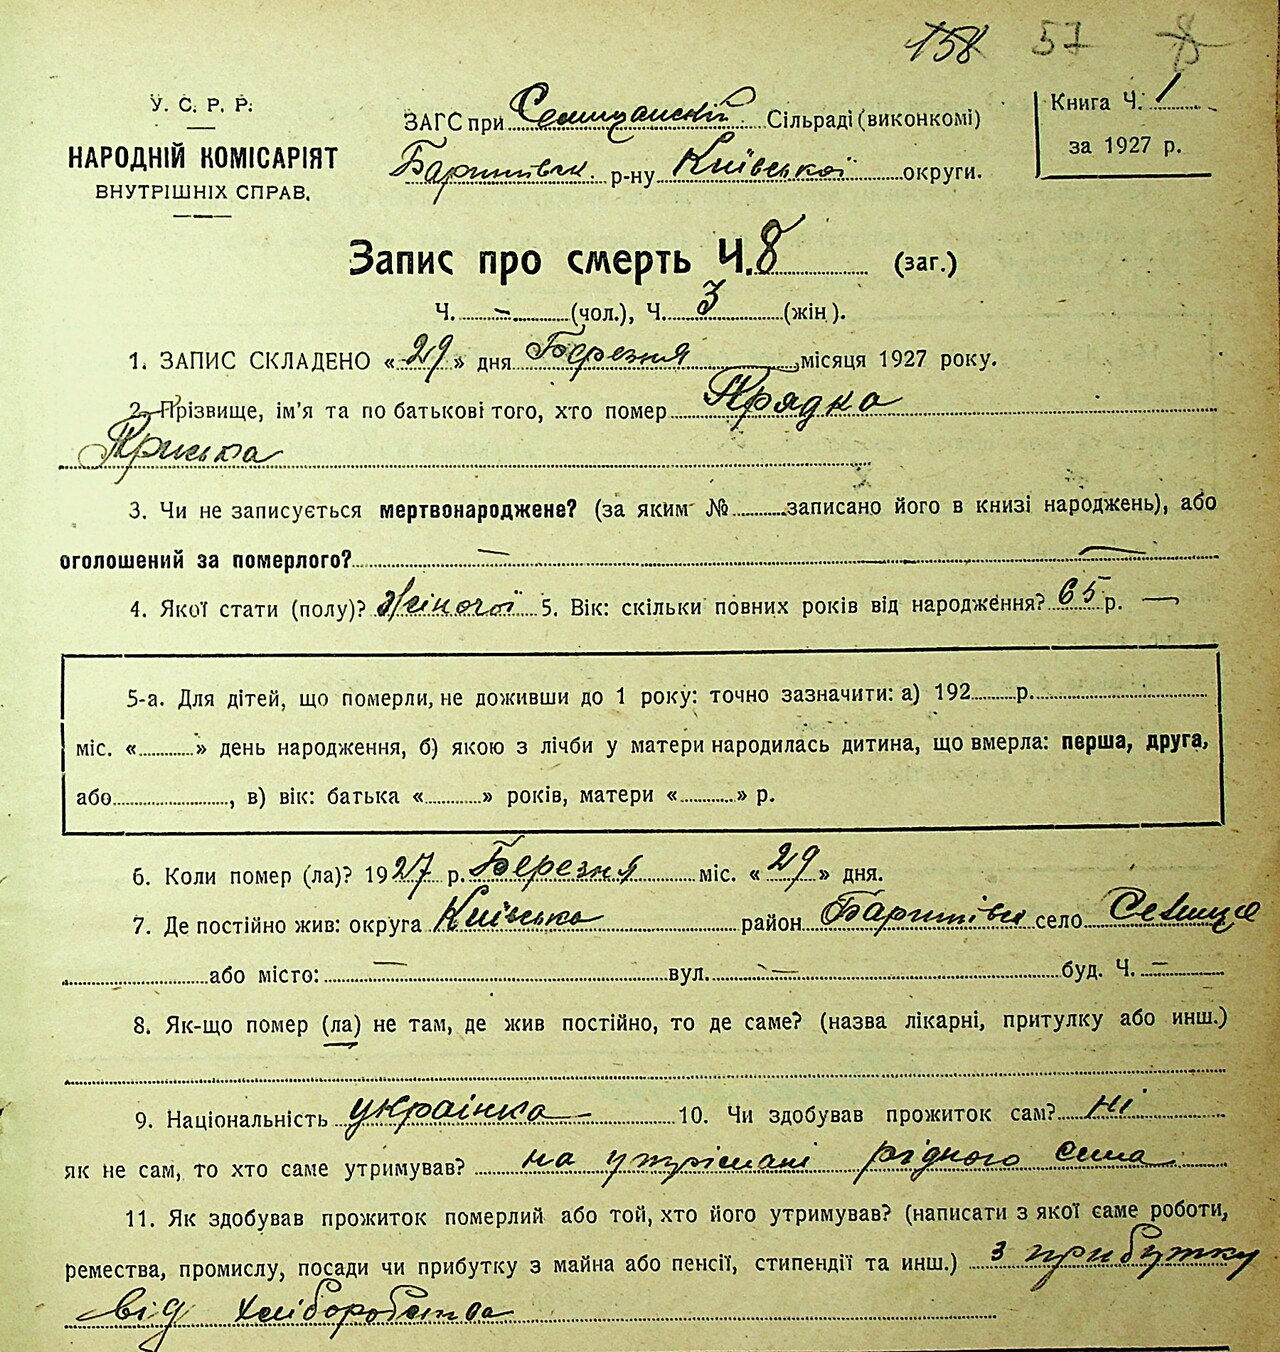 158 57
У. С. Р. Р.
НАРОДНІЙ КОМІСАРІЯТ
ВНУТРІШНІХ СПРАВ.
ЗАГС при Селищанскій Сільраді (виконкомі)
Баришівськ. р-ну Київської округи.
Книга Ч. 1
за 1927 р.
Запис про смерть Ч. 8 (заг.)
Ч. - (чол.), Ч. 3 (жін).
1. ЗАПИС СКЛАДЕНО «29» дня Березня місяця 1927 року.
2. Прізвище, ім'я та по батькові того, хто помер Прядко
Приська
3. Чи не записується мертвонароджене? (за яким № записано його в книзі народжень), або
оголошений за померлого? — —
4. Якої стати (полу)? Жіночої 5. Вік: скільки повних років від народження? 65 р. —
5-а. Для дітей, що померли, не доживши до 1 року: точно зазначити: а) 192 р.
міс. « » день народження, б) якою з лічби у матери народилась дитина, що вмерла: перша, друга,
або , в) вік: батька « » років, матери « » р.
6. Коли помер (ла)? 1927 р. Березня міс. «29» дня.
7. Де постійно жив: округа Київська район Баришівськ село Селище
або місто: — вул. — буд. Ч. —
8. Як-що помер (ла) не там, де жив постійно, то де саме? (назва лікарні, притулку або инш.)
9. Національність українка 10. Чи здобував прожиток сам? ні
як не сам, то хто саме утримував? на утрімані рідного сина
11. Як здобував прожиток померлий або той, хто його утримував? (написати з якої саме роботи,
ремества, промислу, посади чи прибутку з майна або пенсії, стипендії та инш.) з прибутку
від хліборобства